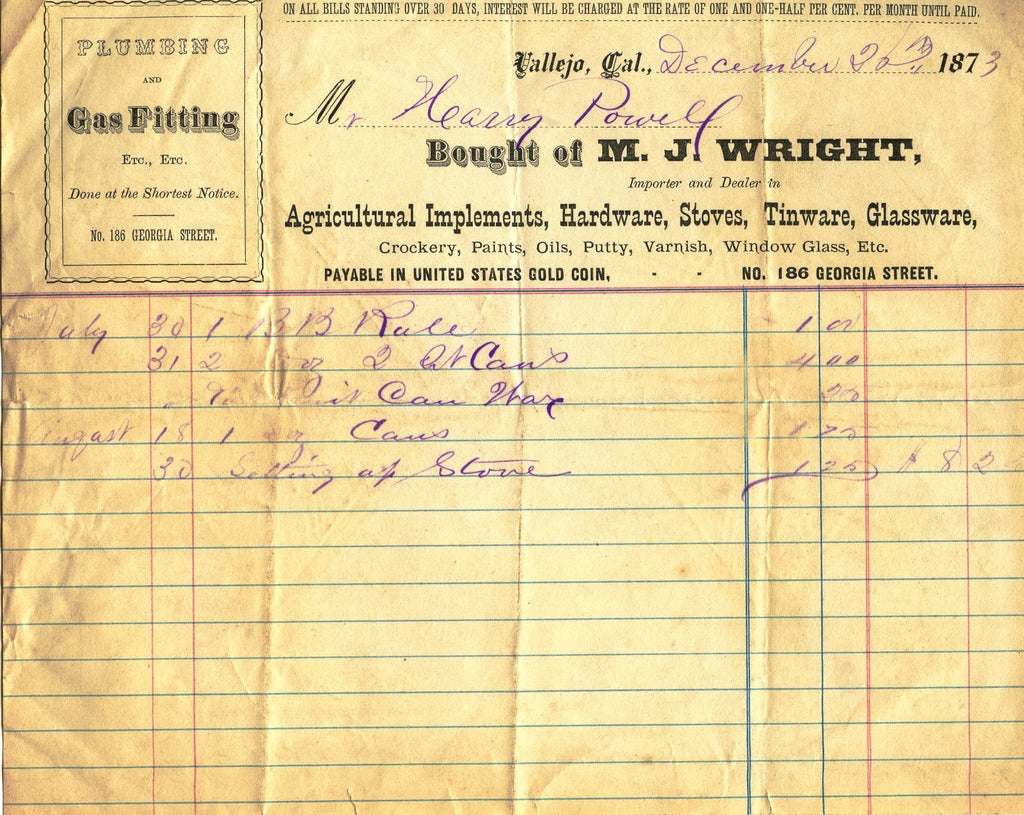 ON ALL BILLS STANDING OVER 30 DAYS, INTEREST WILL BE CHARGED AT THE RATE OF ONE AND ONE-HALF PER CENT. PER MONTH UNTIL PAID.
PLUMBING
AND
Gas Fitting
Etc., Etc.
Done at the Shortest Notice.
No. 186 GEORGIA STREET.
Vallejo, Cal., December 20th, 1873
Mr. Harry Powell
Bought of M. J. WRIGHT,
Importer and Dealer in
Agricultural Implements, Hardware, Stoves, Tinware, Glassware,
Crockery, Paints, Oils, Putty, Varnish, Window Glass, Etc.
PAYABLE IN UNITED STATES GOLD COIN, - - No. 186 GEORGIA STREET.
July 30 1 B B Rule 1 00
31 2 Doz 2 Qt Cans 4 00
" Can Wax 20
August 18 1 Doz Cans 1 75
30 Setting up Stove 1 25 $ 8 2